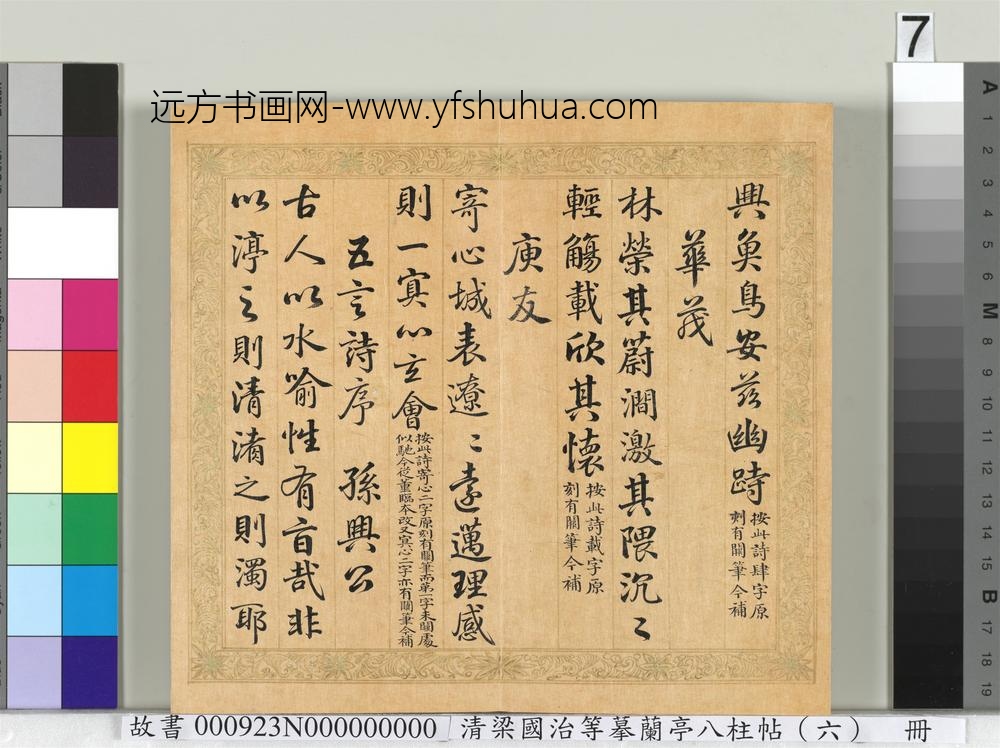 7
远方书画网-www.yfshuhua.com
興魚鳥安茲幽跱按此詩肆字原
刻有闕筆今補
華茂
林榮其蔚澗激其隈沉〻
輕觴載欣其懷按此詩載字原
刻有闕筆今補
庾友
寄心城表遼〻遠邁理感
則一冥心玄會按此詩寄心二字原刻有闕筆而第一字末闕處
似馳今從董臨本改又冥心二字亦有闕筆今補
五言詩序 孫興公
古人以水喻性有旨哉非
以渟之則清淆之則濁耶
故書 000923N000000000 清梁國治等摹蘭亭八柱帖（六） 冊
A 1 2 3 4 5 6 M 8 9 10 11 12 13 14 15 B 17 18 19